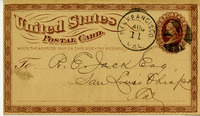 United States
Postal Card.
WRITE THE ADDRESS ONLY ON THIS SIDE - THE MESSAGE ON THE OTHER
SAN FRANCISCO
AUG
11
CAL.
To R. E. Jack Esq.
San Luis Obispo
Cal